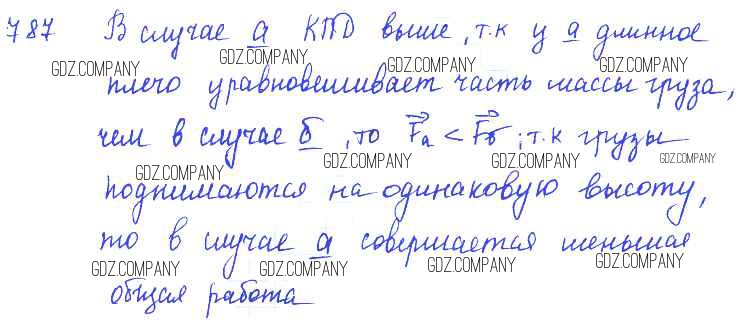 787 В случае а КПД выше, т.к у а длинное
GDZ.COMPANY GDZ.COMPANY GDZ.COMPANY GDZ.COMPANY
плечо уравновешивает часть массы груза,
чем в случае б, то Fа < Fб; т.к грузы
GDZ.COMPANY GDZ.COMPANY GDZ.COMPANY GDZ.COMPANY
поднимаются на одинаковую высоту,
то в случае а совершается меньшая
GDZ.COMPANY GDZ.COMPANY GDZ.COMPANY GDZ.COMPANY
общая работа